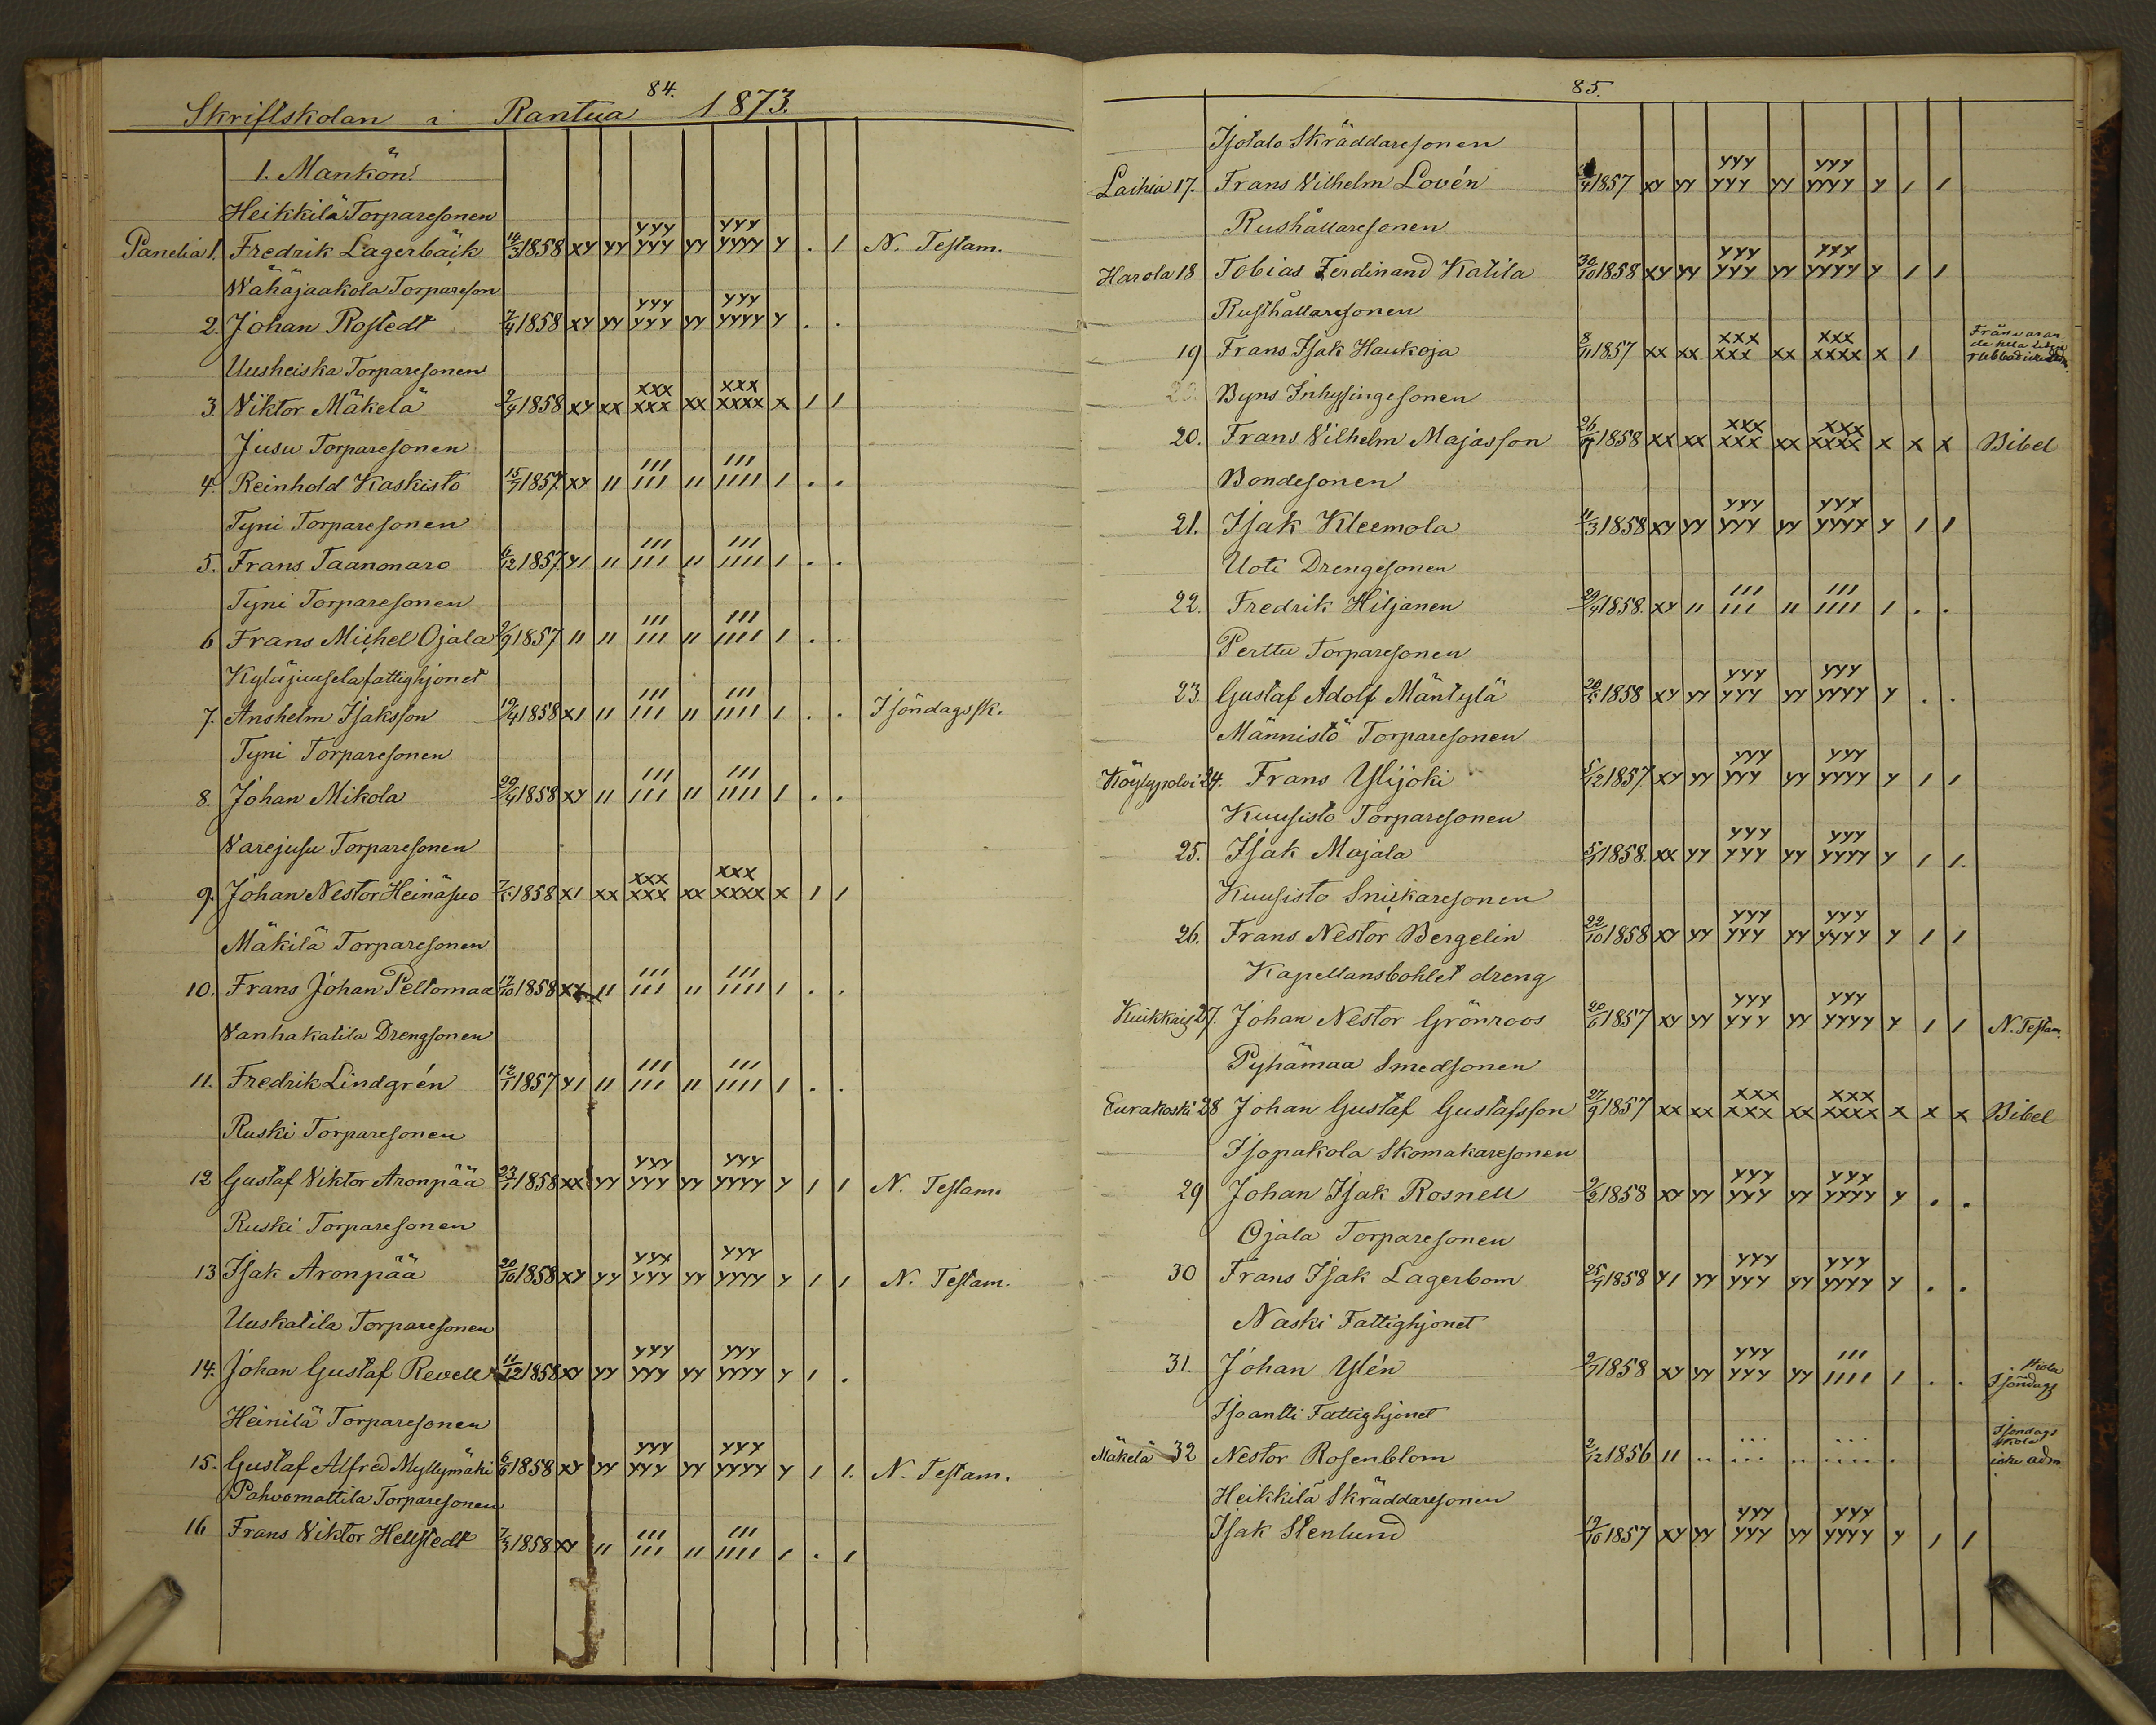 84.
Skriftskolan i Rantua 1873.
1. Mankön.
Heikkilä Torparesonen
Panelia 1. Fredrik Lagerbäck 14/3 1858 xy yy yyy yyy yy yyy yyyy y . 1 N. Testam.
Wähäjaakola Torpareson
2. Johan Rostedt 7/4 1858 xy yy yyy yyy yy yyy yyyy y . .
Uusheiska Torparesonen
3. Viktor Mäkelä 9/4 1858 xy xx xxx xxx xx xxx xxxx x 1 1
Jusu Torparesonen
4. Reinhold Kaskisto 15/7 1857. xy 11 111 111 11 111 1111 1 . .
Tyni Torparesonen
5. Frans Taanonaro 6/12 1857. y1 11 111 111 11 111 1111 1 . .
Tyni Torparesonen
6 Frans Michel Ojala 2/9 1857 11 11 111 111 11 111 1111 1 . .
Kyläjuusela fattighjonet
7. Anshelm Isaksson 19/4 1858 x1 11 111 111 11 111 1111 1 . . I söndagssk.
Tyni Torparesonen
8. Johan Mikola 29/4 1858 xy 11 111 111 11 111 1111 1 . .
Warejusu Torparesonen
9. Johan Nestor Heinäsuo 1858 x1 xx xxx xxx xx xxx xxxx x 1 1
Mäkilä Torparesonen
10. Frans Johan Peltomaa 17/10 1858 xy 11 111 111 11 111 1111 1 . .
Vanhakatila Drengsonen
11. Fredrik Lindgrén 12/1 1857 y1 11 111 111 11 111 1111 1 . .
Ruski Torparesonen
12 Gustaf Viktor Aronpää 23/1 1858 xx yy yyy yyy yy yyy yyyy y 1 1 N. Testam.
Ruski Torparesonen
13 Isak Aronpää 20/10 1858 xy yy yyy yyy yy yyy yyyy y 1 1 N. Testam.
Uuskatila Torparesonen
14. Johan Gustaf Revell 11/12 1858 xy yy yyy yyy yy yyy yyyy y 1 .
Heinilä Torparesonen
15. Gustaf Alfred Myllymäki 6/6 1858 xy yy yyy yyy yy yyy yyyy y 1 1. N. Testam.
Pahvomattila Torparesonen
16 Frans Viktor Hellstedt 7/3 1858 xy 11 111 111 11 111 1111 1 . 1
85.
Isotalo Skräddaresonen
Laihia 17. Frans Vilhelm Lovén 1857 xy yy yyy yyy yy yyy yyyy y 1 1
Rushållaresonen
Harola 18 Tobias Ferdinand Katila 30/10 1858 xy yy yyy yyy yy yyy yyyy y 1 1
Rusthållaresonen
19 Frans Isak Haukoja 8/11 1857 xx xx xxx xxx xx xxx xxxx x 1 Frånvaran
Byns Inhysingesonen
20. Frans Vilhelm Majasson 1858 xx xx xxx xxx xx xxx xxxx x x x Bibel
Bondesonen
21. Isak Kleemola 11/3 1858 xy yy yyy yyy yy yyy yyyy y 1 1
Uoti Drengesonen
22. Fredrik Hiljanen 29/4 1858. xy 11 111 111 11 111 1111 1 . .
Perttu Torparesonen
23. Gustaf Adolf Mäntylä 1858 xy yy yyy yyy yy yyy yyyy y . .
Männistö Torparesonen
Köylypolvi 24. Frans Ylijoki 5/12 1857. xy yy yyy yyy yy yyy yyyy y 1 1
Kuusisto Torparesonen
25. Isak Majala 1858. xx yy yyy yyy yy yyy yyyy y 1 1.
Kuusisto Snickaresonen
26. Frans Nestor Bergelin 22/10 1858 xy yy yyy yyy yy yyy yyyy y 1 1
Kapellansbohlet dreng
Kuikkais 27. Johan Nestor Grönroos 20/6 1857 xy yy yyy yyy yy yyy yyyy y 1 1 N. Testam.
Pyhämaa Smedsonen
Eurakoski 28 Johan Gustaf Gustafsson 27/9 1857 xx xx xxx xxx xx xxx xxxx x x x Bibel
Isopakola Skomakaresonen
29 Johan Isak Rosnell 9/2 1858 xy yy yyy yyy yy yyy yyyy y . .
Ojala Torparesonen
30 Frans Isak Lagerbom 1858 y1 yy yyy yyy yy yyy yyyy y . .
Naski Fattighjonet
31. Johan Ylén 9/7 1858 xy yy yyy yyy yy 111 1111 1 . . I söndags skola
Isoantti Fattighjonet
Mäkelä 32 Nestor Rosenblom 2/12 1856 11 .. ... ... .. ... .... . I söndags skola icke adm.
Heikkilä Skräddaresonen
Isak Stenlund 19/10 1857 xy yy yyy yyy yy yyy yyyy y 1 1